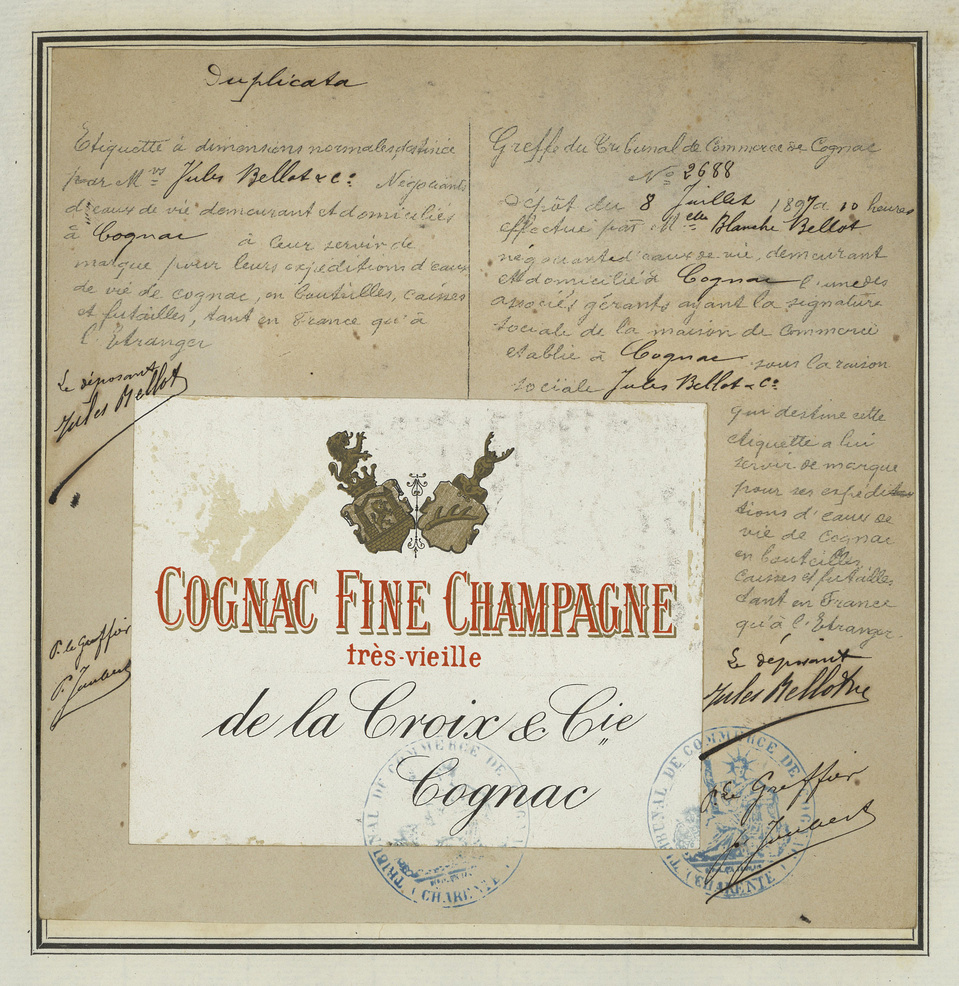 Duplicata
Etiquette à dimensions normales, destinée
par Mrs Jules Bellot & Cie Négociants
d'eaux de vie demeurant et domiciliés
à Cognac à leur servir de
marque pour leurs expéditions d'eaux
de vie de cognac, en bouteilles, caisses
et futailles, tant en France qu'à
l'Etranger
Le déposant
Jules Bellot
P. le Greffier
P. Jaubert
Greffe du Tribunal de Commerce de Cognac
No 2688
Dépôt du 8 Juillet 1897 à 10 heures
effectué par Melle Blanche Bellot
négociante d'eaux de vie, demeurant
et domicilié à Cognac l'une des
associés gérants ayant la signature
sociale de la maison de Commerce
établie à Cognac sous la raison
sociale Jules Bellot & Cie
qui destine cette
étiquette a lui
servir de marque
pour ses expédi
tions d'eaux de
vie de Cognac
en bouteilles,
caisses et futailles
tant en France
qu'à l'Etranger.
Le déposant
Jules Bellot & Cie
P. le Greffier
P. Jaubert
COGNAC FINE CHAMPAGNE
très-vieille
de la Croix & Cie
Cognac
TRIBUNAL DE COMMERCE DE COGNAC
(CHARENTE)
TRIBUNAL DE COMMERCE DE COGNAC
(CHARENTE)